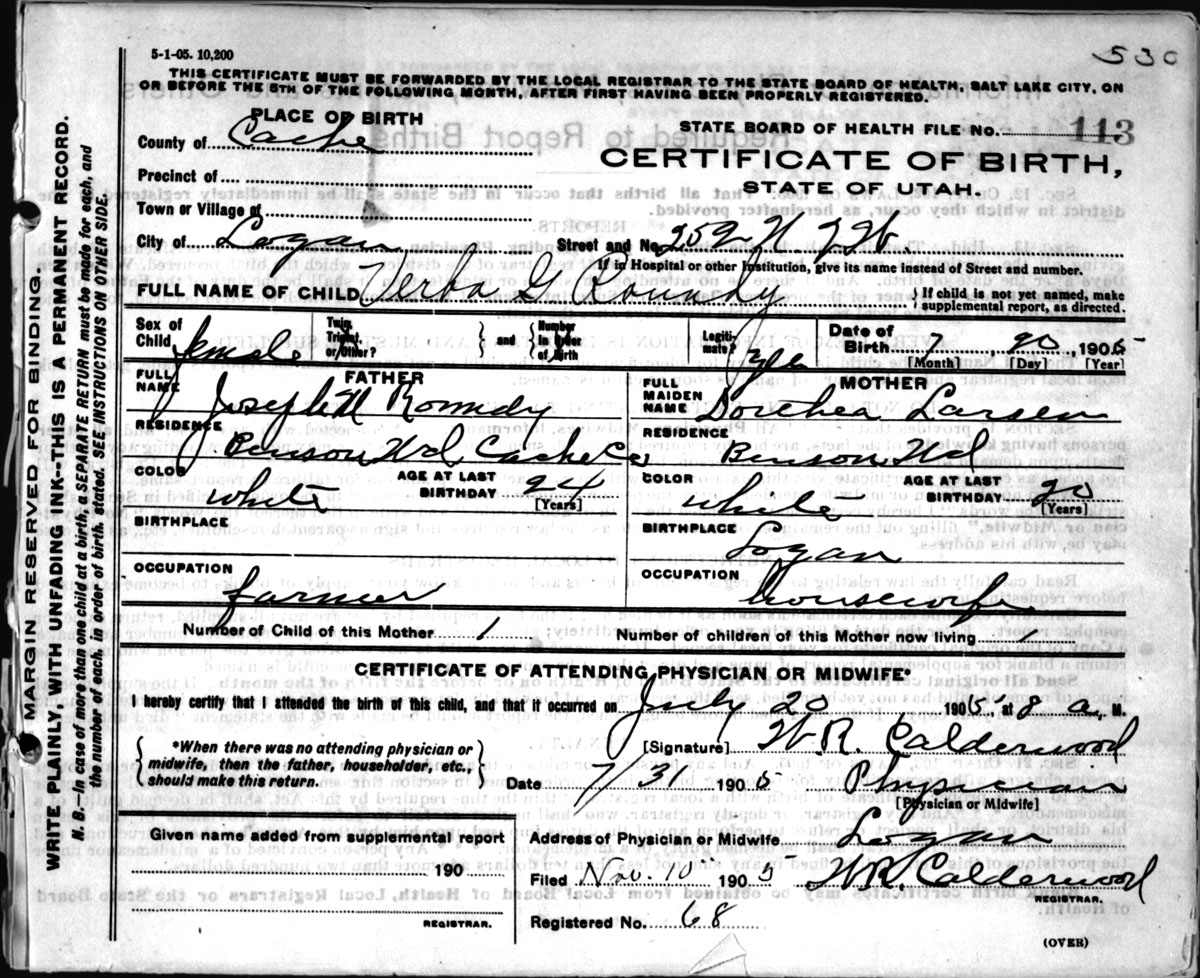 5-1-05. 10,200
530
THIS CERTIFICATE MUST BE FORWARDED BY THE LOCAL REGISTRAR TO THE STATE BOARD OF HEALTH, SALT LAKE CITY, ON
OR BEFORE THE 5TH OF THE FOLLOWING MONTH, AFTER FIRST HAVING BEEN PROPERLY REGISTERED.
PLACE OF BIRTH
County of Cache
Precinct of
Town or Village of
City of Logan
STATE BOARD OF HEALTH FILE No. 113
CERTIFICATE OF BIRTH,
STATE OF UTAH.
Street and No. 259 N 2 W
If in Hospital or other Institution, give its name instead of Street and number.
FULL NAME OF CHILD Verba G Roundy
If child is not yet named, make supplemental report, as directed.
Sex of Child female
Twin, Triplet, or Other?
and
Number in Order of Birth
Legitimate? yes
Date of Birth 7 20 1905
[Month] [Day] [Year]
FATHER
FULL NAME Joseph M Roundy
RESIDENCE
Benson Wd Cache Co
COLOR white
AGE AT LAST BIRTHDAY 24
[Years]
BIRTHPLACE
OCCUPATION
farmer
MOTHER
FULL MAIDEN NAME Dorthea Larsen
RESIDENCE Benson Wd
COLOR white
AGE AT LAST BIRTHDAY 20
[Years]
BIRTHPLACE
Logan
OCCUPATION
housewife
Number of Child of this Mother 1 Number of children of this Mother now living 1
CERTIFICATE OF ATTENDING PHYSICIAN OR MIDWIFE*
I hereby certify that I attended the birth of this child, and that it occurred on July 20 1905 at 8 a. M.
*When there was no attending physician or
midwife, then the father, householder, etc.,
should make this return.
[Signature] W.R. Calderwood
Date 7 31 1905 Physician
[Physician or Midwife]
Given name added from a supplemental report
190
REGISTRAR.
Address of Physician or Midwife Logan
Filed Nov. 10 1905 W.R. Calderwood
REGISTRAR.
Registered No. 68
(OVER)
MARGIN RESERVED FOR BINDING.
WRITE PLAINLY WITH UNFADING INK--THIS IS A PERMANENT RECORD.
N. B.—In case of more than one child at a birth, a SEPARATE RETURN must be made for each, and
the number of each, in order of birth, stated. SEE INSTRUCTIONS ON OTHER SIDE.